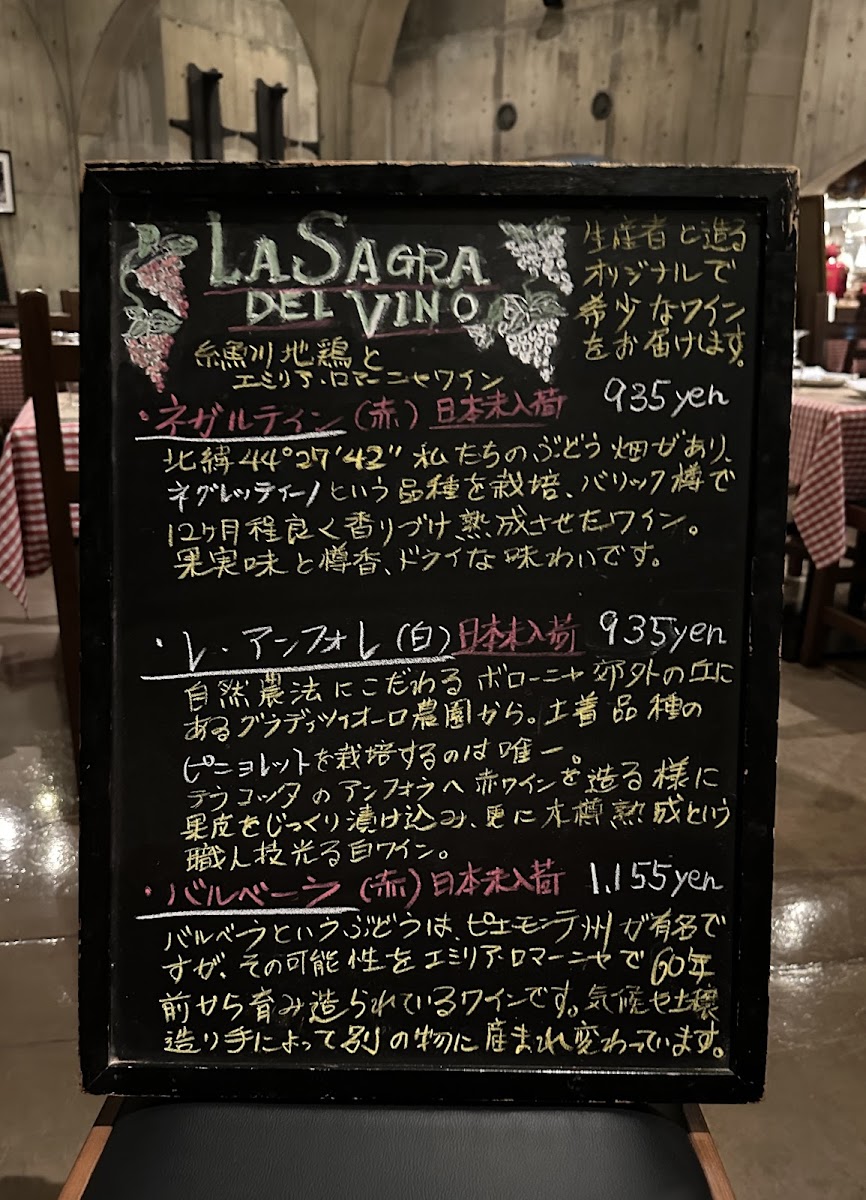 LA SAGRA
DEL VINO
生産者と造る
オリジナルで
希少なワイン
をお届けします。
糸魚川地鶏と
エミリア・ロマーニャワイン
・ネガルティン(赤) 日本未入荷 935yen
北緯44°27'42" 私たちのぶどう畑があり、
ネグレッティーノという品種を栽培、バリック樽で
12ヶ月程良く香りづけ熟成させたワイン。
果実味と樽香、ドライな味わいです。
・レ・アンフォレ(白) 日本未入荷 935yen
自然農法にこだわるボローニャ郊外の丘に
あるグラディツィオーロ農園から。土着品種の
ピニョレットを栽培するのは唯一。
テラコッタのアンフォラへ赤ワインを造る様に
果皮をじっくり漬け込み、更に木樽熟成という
職人技光る白ワイン。
・バルベーラ(赤) 日本未入荷 1,155yen
バルベラというぶどうは、ピエモンテ州が有名で
すが、その可能性をエミリア・ロマーニャで60年
前から育み造られているワインです。気候や土壌
造り手によって別の物に産まれ変わっています。